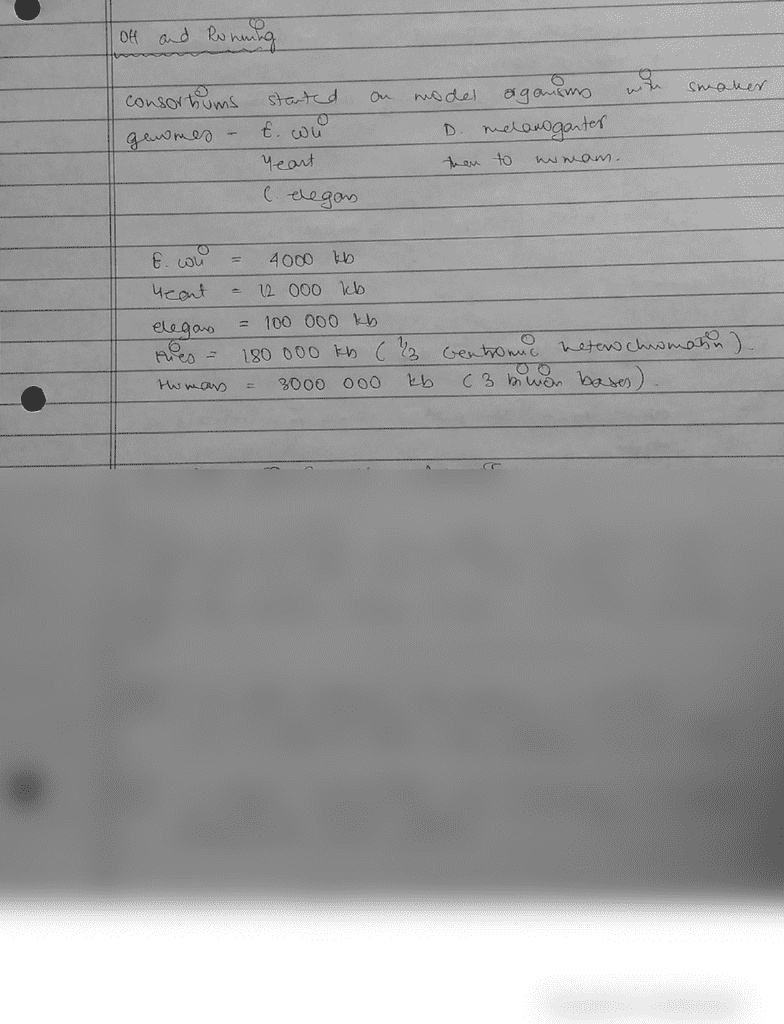 Off and Running
consortiums started on model organisms with smaller
genomes - E. coli D. melanogaster
Yeast then to human.
C. elegans
E. coli = 4000 kb
Yeast = 12 000 kb
elegans = 100 000 kb
Flies = 180 000 kb ( 1/3 centromic heterochromatin ).
Humans = 3000 000 kb ( 3 billion bases ).